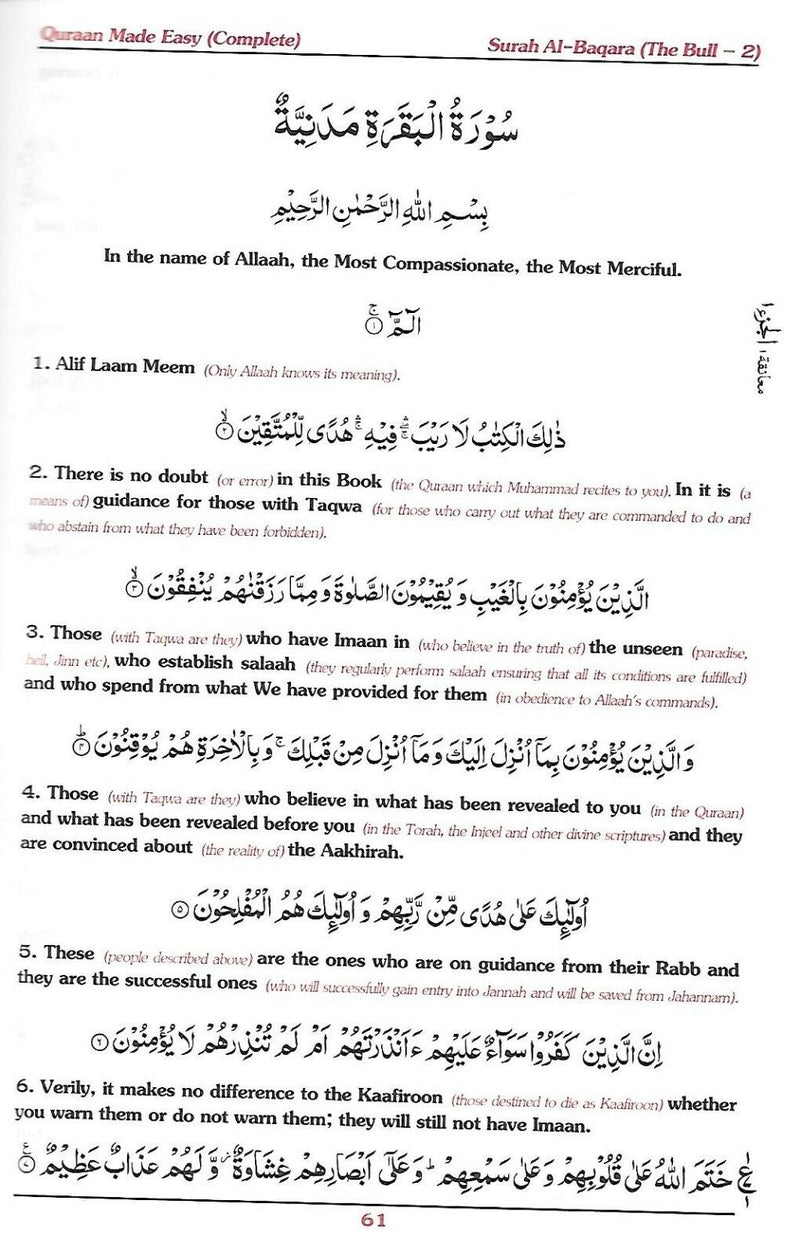 Quraan Made Easy (Complete)
Surah Al-Baqara (The Bull – 2)
سُوْرَةُ الْبَقَرَةِ مَدَنِيَّةٌ
بِسْمِ اللّٰهِ الرَّحْمٰنِ الرَّحِيْمِ
In the name of Allaah, the Most Compassionate, the Most Merciful.
الٓمّٓ ۚ ۝۱
معانقة ۱ الجزء ۱
1. Alif Laam Meem (Only Allaah knows its meaning).
ذٰلِكَ الْكِتٰبُ لَا رَيْبَ ۛۚ فِيْهِ ۛۚ هُدًى لِّلْمُتَّقِيْنَ ۙ ۝۲
2. There is no doubt (or error) in this Book (the Quraan which Muhammad recites to you). In it is (a
means of) guidance for those with Taqwa (for those who carry out what they are commanded to do and
who abstain from what they have been forbidden).
الَّذِيْنَ يُؤْمِنُوْنَ بِالْغَيْبِ وَ يُقِيْمُوْنَ الصَّلٰوةَ وَ مِمَّا رَزَقْنٰهُمْ يُنْفِقُوْنَ ۙ ۝۳
3. Those (with Taqwa are they) who have Imaan in (who believe in the truth of) the unseen (paradise,
hell, Jinn etc), who establish salaah (they regularly perform salaah ensuring that all its conditions are fulfilled)
and who spend from what We have provided for them (in obedience to Allaah's commands).
وَ الَّذِيْنَ يُؤْمِنُوْنَ بِمَآ اُنْزِلَ اِلَيْكَ وَ مَآ اُنْزِلَ مِنْ قَبْلِكَ ۚ وَ بِالْاٰخِرَةِ هُمْ يُوْقِنُوْنَ ؕ ۝۴
4. Those (with Taqwa are they) who believe in what has been revealed to you (in the Quraan)
and what has been revealed before you (in the Torah, the Injeel and other divine scriptures) and they
are convinced about (the reality of) the Aakhirah.
اُولٰٓئِكَ عَلٰى هُدًى مِّنْ رَّبِّهِمْ وَ اُولٰٓئِكَ هُمُ الْمُفْلِحُوْنَ ۝۵
5. These (people described above) are the ones who are on guidance from their Rabb and
they are the successful ones (who will successfully gain entry into Jannah and will be saved from Jahannam).
اِنَّ الَّذِيْنَ كَفَرُوْا سَوَآءٌ عَلَيْهِمْ ءَاَنْذَرْتَهُمْ اَمْ لَمْ تُنْذِرْهُمْ لَا يُؤْمِنُوْنَ ۝۶
6. Verily, it makes no difference to the Kaafiroon (those destined to die as Kaafiroon) whether
you warn them or do not warn them; they will still not have Imaan.
خَتَمَ اللّٰهُ عَلٰى قُلُوْبِهِمْ وَ عَلٰى سَمْعِهِمْ ؕ وَ عَلٰٓى اَبْصَارِهِمْ غِشَاوَةٌ ؗ وَّ لَهُمْ عَذَابٌ عَظِيْمٌ ۝۷
61